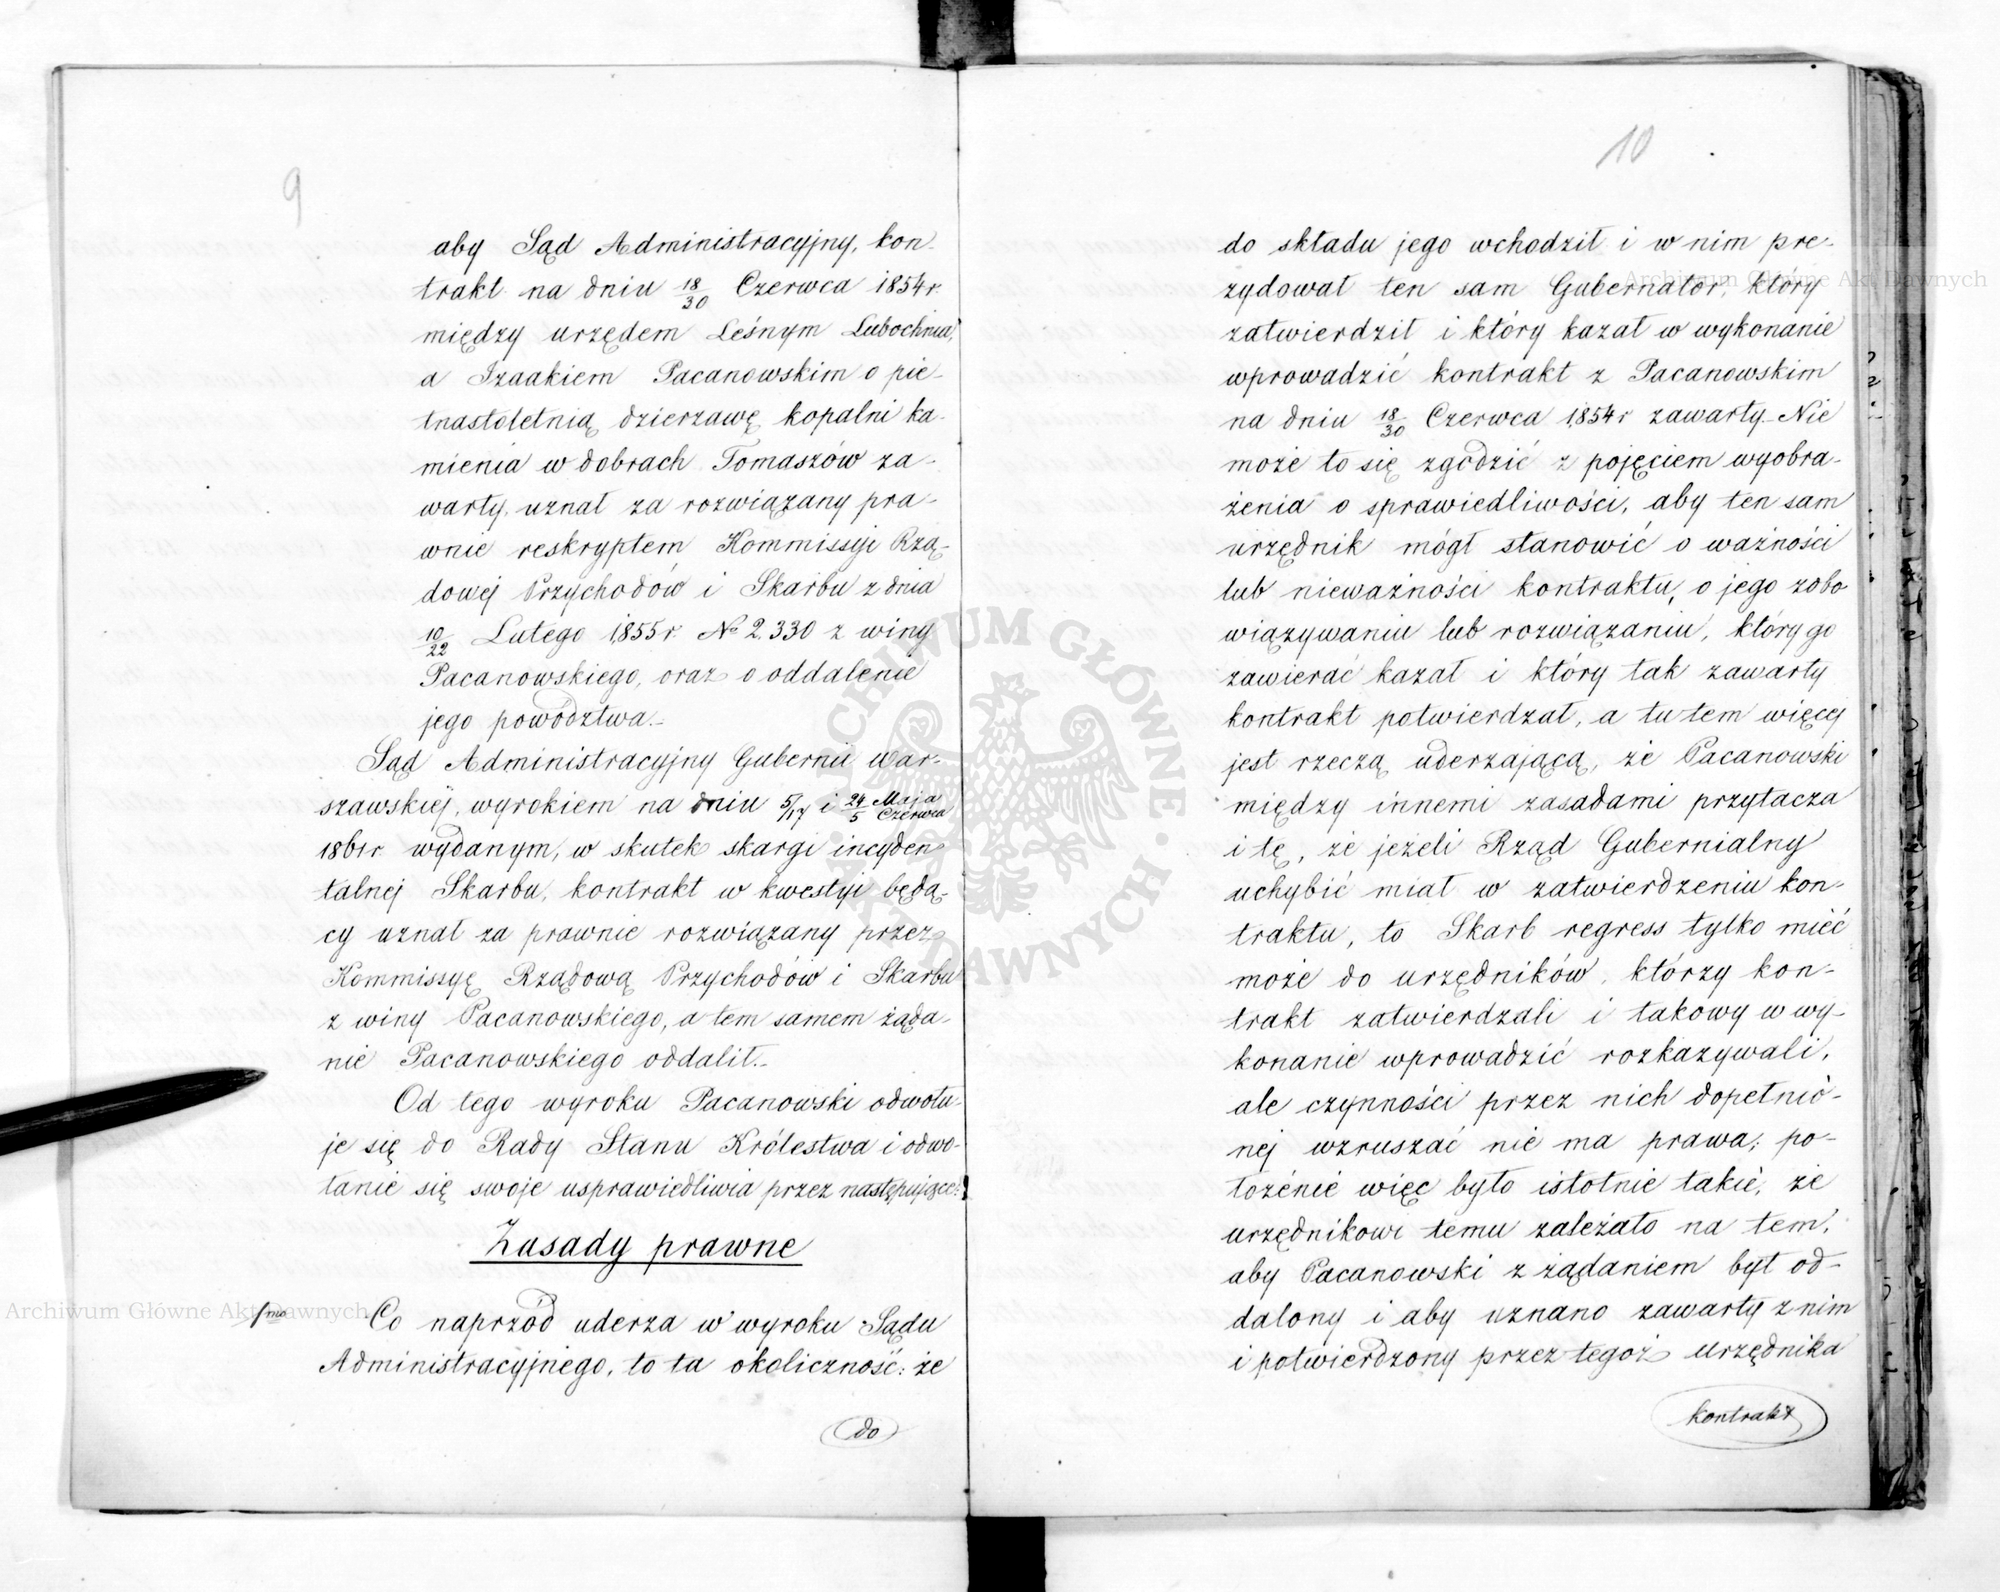 9
aby Sąd Administracyjny, kon-
trakt na dniu 18/30 Czerwca 1854 r
między urzędem Leśnym Lubochnia,
a Izaakiem Pacanowskim o pię-
tnastoletnią dzierzawę kopalni ka-
mienia w dobrach Tomaszów za-
warty, uznał za rozwiązany pra-
wnie reskryptem Kommissyi Rzą-
dowej Przychodów i Skarbu z dnia
10/22 Lutego 1855 r. No 2.330 z winy
Pacanowskiego, oraz o oddalenie
jego powództwa.-
Sąd Administracyjny Gubernii War-
szawskiej, wyrokiem na dniu 5/17 i 24 Maja/5 Czerwca
1861 r wydanym, w skutek skargi incyden-
talnej Skarbu, kontrakt w kwestyi będą-
cy uznał za prawnie rozwiązany przez
Kommissyę Rządową Przychodów i Skarbu
z winy Pacanowskiego, a tem samem żąda-
nie Pacanowskiego oddalił.-
Od tego wyroku Pacanowski odwołu-
je się do Rady Stanu Królestwa i odwo-
łanie się swoje usprawiedliwia przez następujące:
Zasady prawne
1mo Co naprzód uderza w wyroku Sądu
Administracyjnego, to ta okoliczność: że
do
10
do składu jego wchodził i w nim pre-
zydował ten sam Gubernator, który
zatwierdził i który kazał w wykonanie
wprowadzić kontrakt z Pacanowskim
na dniu 18/30 Czerwca 1854 r zawarty. Nie
może to się zgodzić z pojęciem wyobra-
żenia o sprawiedliwości, aby ten sam
urzędnik mógł stanowić o ważności
lub nieważności kontraktu, o jego zobo
wiązywaniu lub rozwiązaniu, który go
zawierać kazał i który tak zawarty
kontrakt potwierdzał, a tu tem więcej
jest rzeczą uderzającą, że Pacanowski
między innemi zasadami przytacza
i tę, że jeżeli Rząd Gubernialny
uchybić miał w zatwierdzeniu kon-
traktu, to Skarb regress tylko mieć
może do urzędników, którzy kon-
trakt zatwierdzali i takowy w wy-
konanie wprowadzić rozkazywali,
ale czynności przez nich dopełnio-
nej wzruszać nie ma prawa; po-
łożenie więc było istotnie takie, że
urzędnikowi temu zależało na tem,
aby Pacanowski z żądaniem był od-
dalony i aby uznano zawarty z nim
i potwierdzony przez tegoż urzędnika
kontrakt
Archiwum Główne Akt Dawnych
Archiwum Główne Akt Dawnych
ARCHIWUM GŁÓWNE AKT DAWNYCH